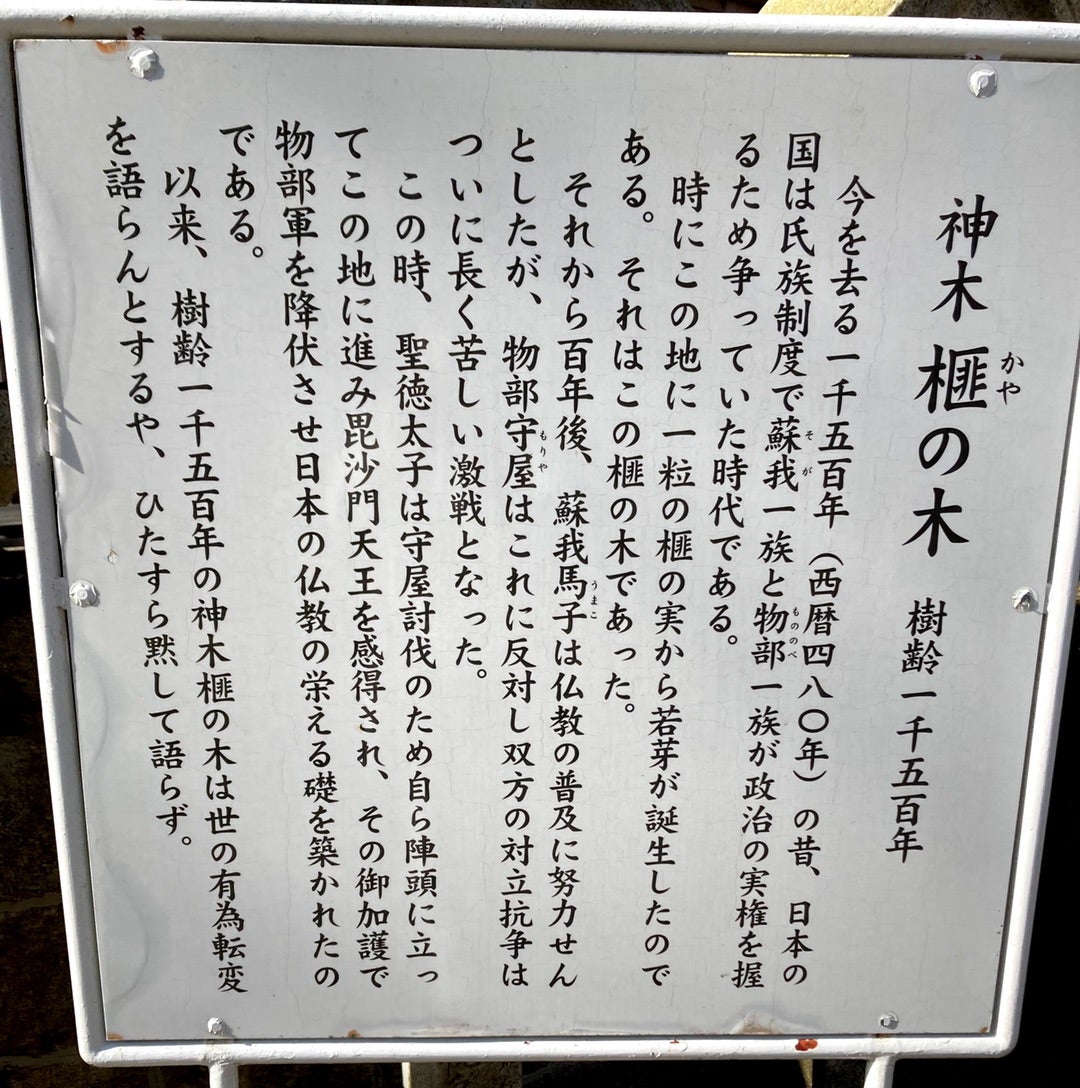 神木 榧の木 樹齢一千五百年
かや
今を去る一千五百年(西暦四八〇年)の昔、日本の
国は氏族制度で蘇我一族と物部一族が政治の実権を握
そが
もののべ
るため争っていた時代である。
時にこの地に一粒の榧の実から若芽が誕生したので
ある。それはこの榧の木であった。
それから百年後、蘇我馬子は仏教の普及に努力せん
うまこ
としたが、物部守屋はこれに反対し双方の対立抗争は
もりや
ついに長く苦しい激戦となった。
この時、聖徳太子は守屋討伐のため自ら陣頭に立っ
てこの地に進み毘沙門天王を感得され、その御加護で
物部軍を降伏させ日本の仏教の栄える礎を築かれたの
である。
以来、樹齢一千五百年の神木榧の木は世の有為転変
を語らんとするや、ひたすら黙して語らず。